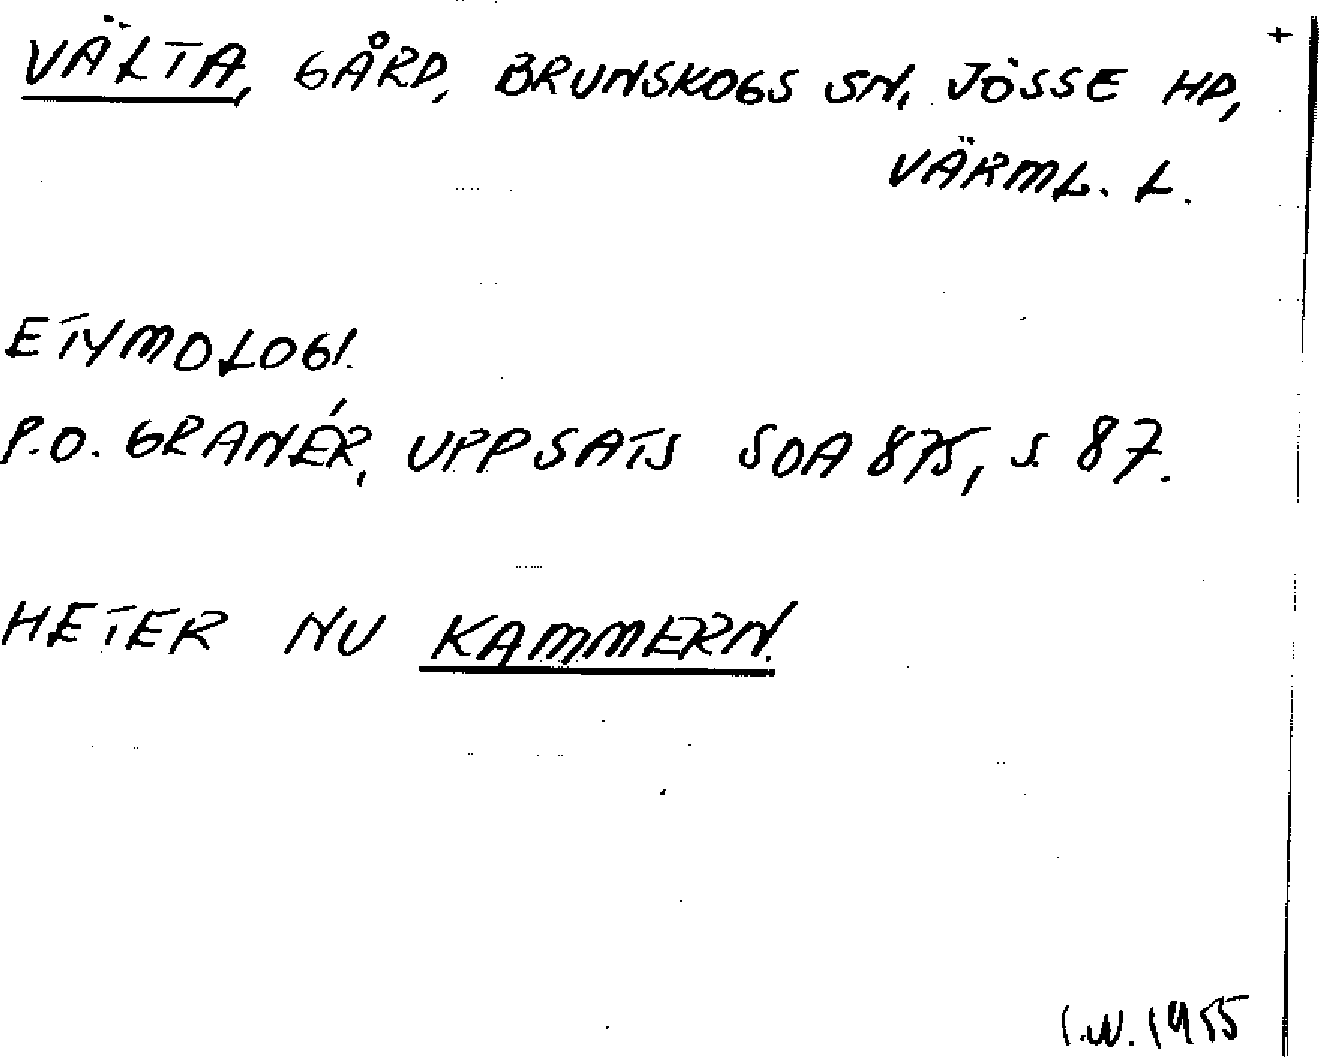 VÄLTA, GÅRD, BRUNSKOGS SN, JÖSSE HD,
VÄRML. L.
ETYMOLOGI.
P.O. GRANÉR, UPPSATS SOA 875, S. 87.
HETER NU KAMMERN.
I.W. 1955